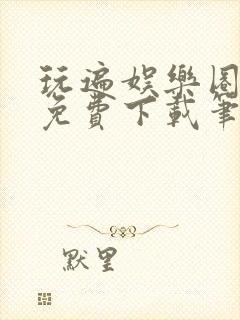 玩遍娛樂圈
免費下載筆
默里